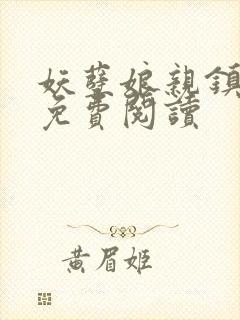 妖孽娘親鎮
免費閱讀
黃眉姬